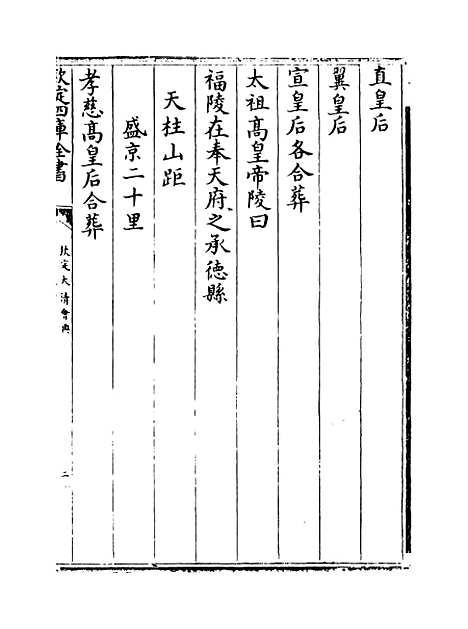 直皇后
翼皇后
宣皇后各合葬
太祖高皇帝陵曰
福陵在奉天府之承德縣
天柱山距
盛京二十里
孝慈高皇后合葬
欽定四庫全書
欽定大清會典
二